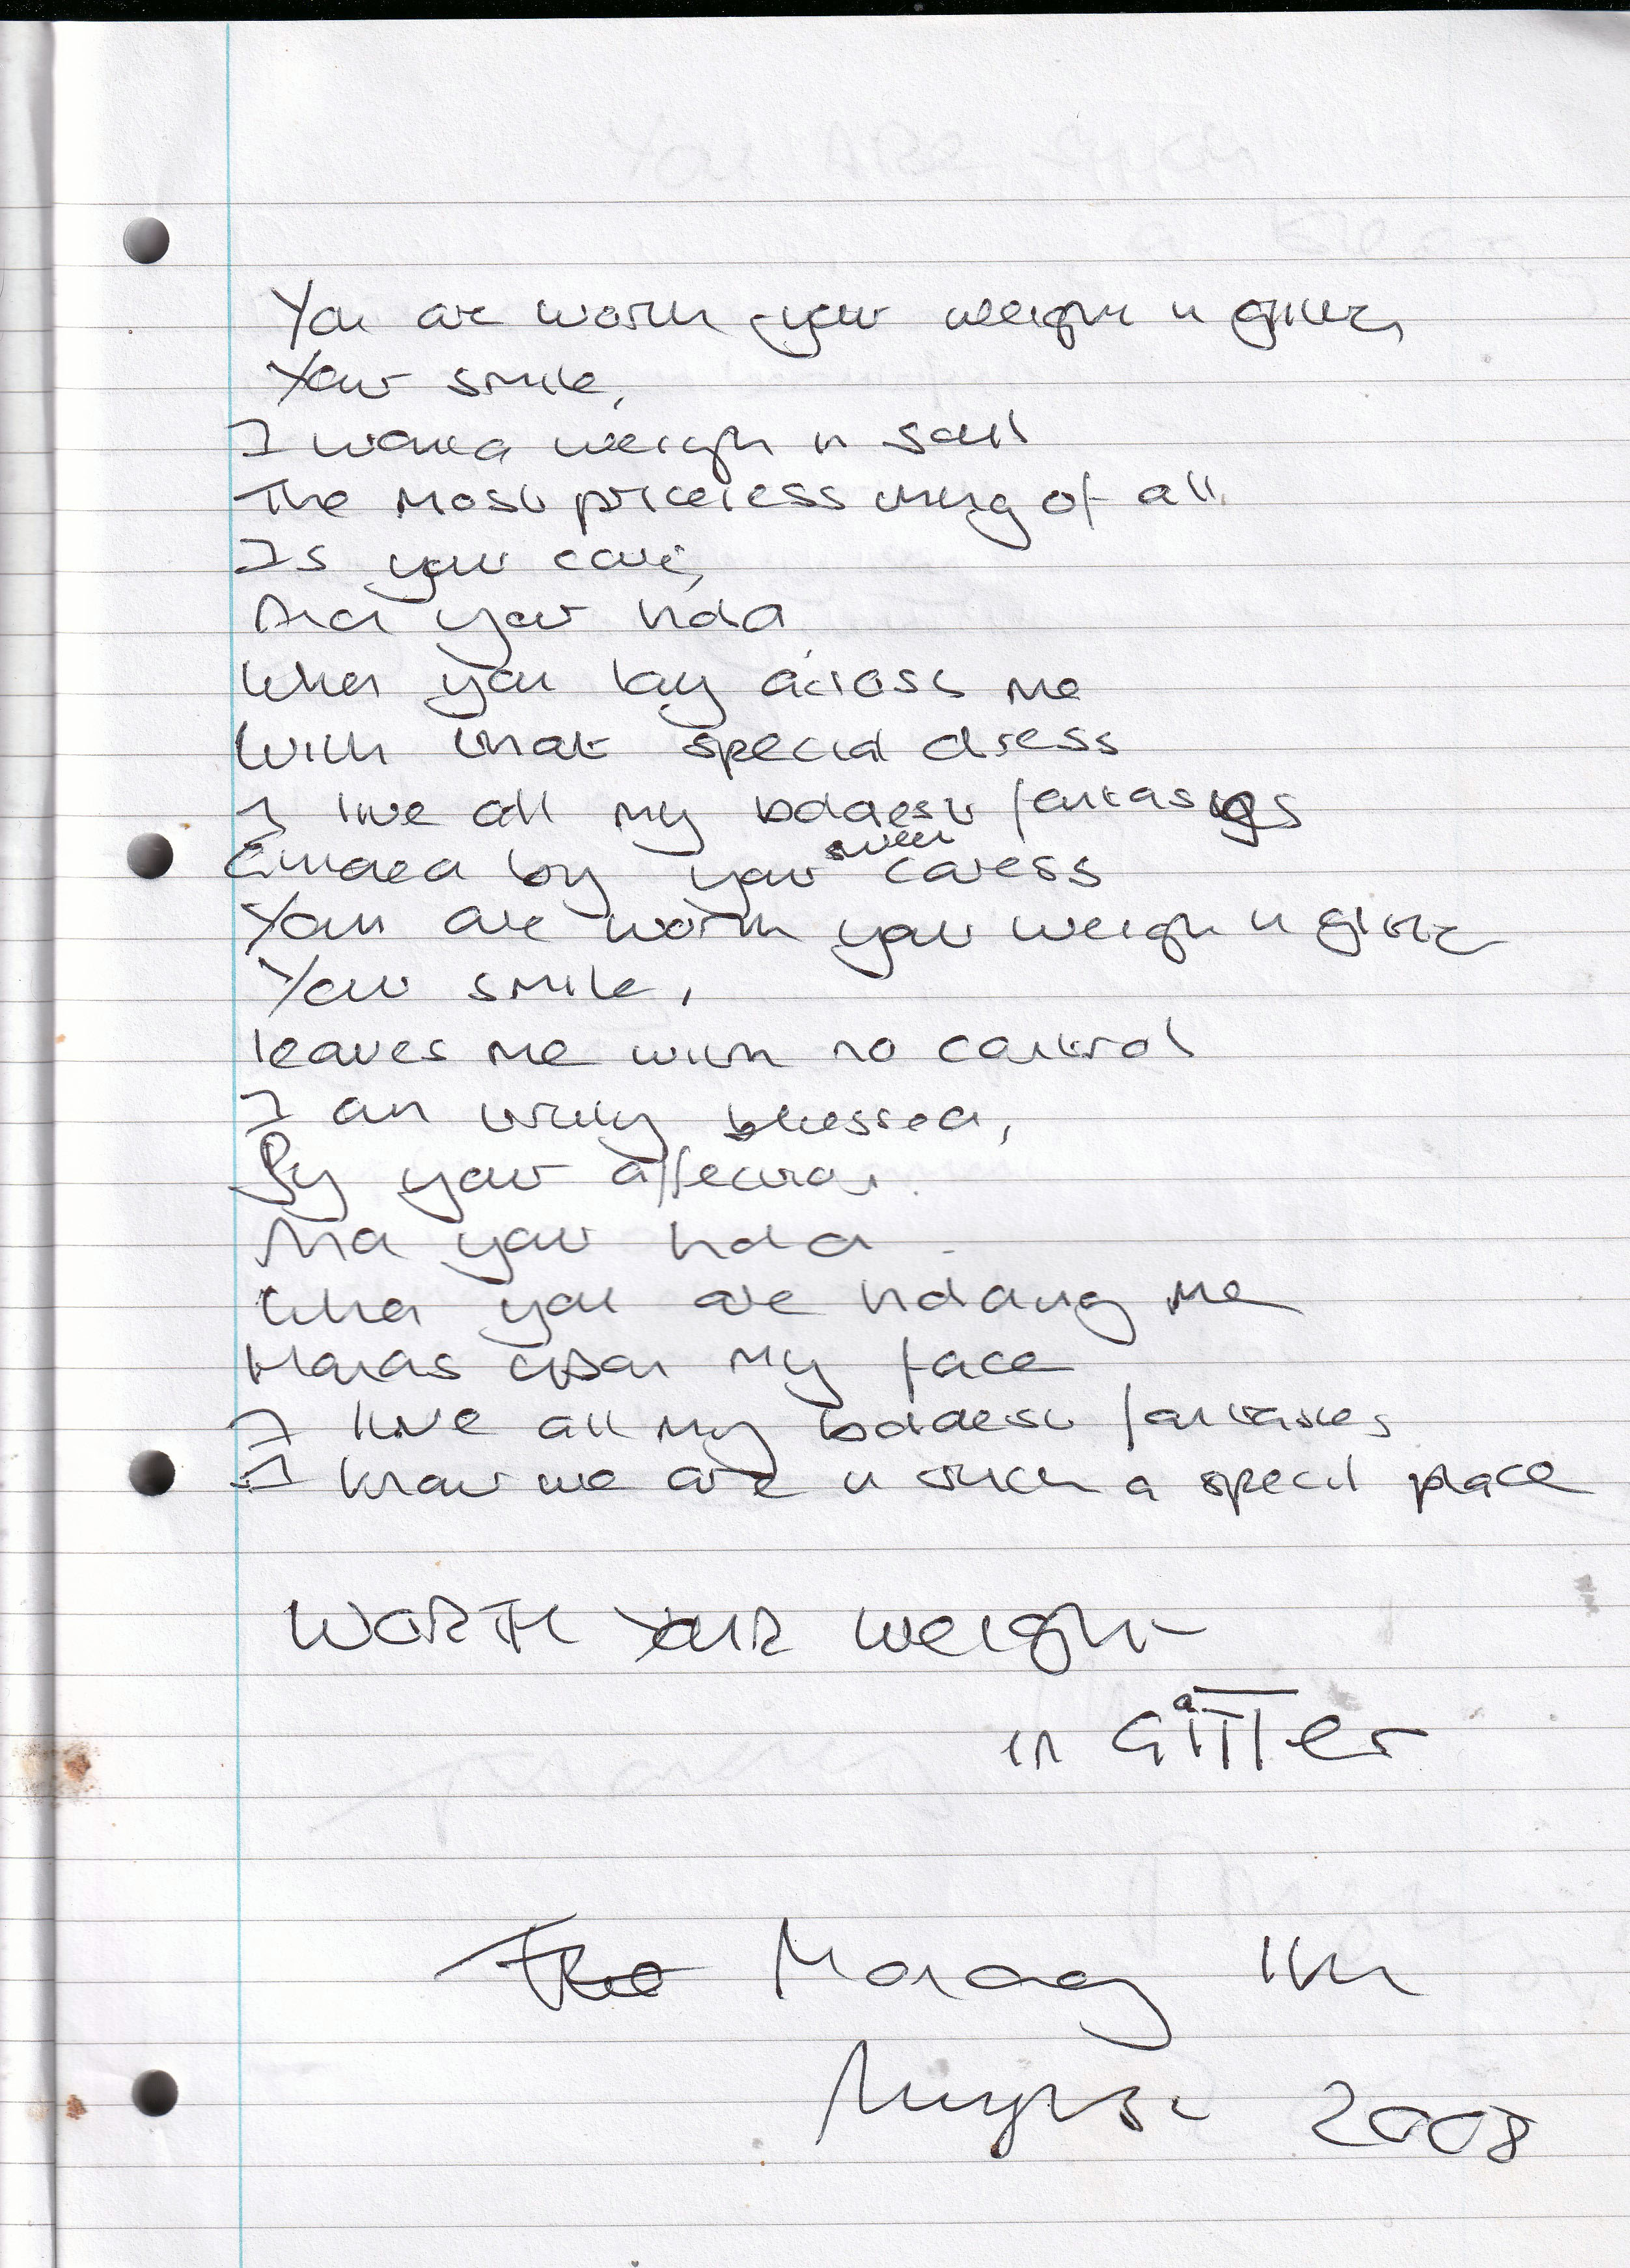 You are worth your weight in glitter,
Your smile,
I would weigh in gold
The most priceless thing of all
Is your love,
And your hold
When you lay across me
With that special dress
I live all my boldest fantasies
by your sweet caress
You are worth your weight in glitter
Your smile,
leaves me with no control
I am truly blessed,
By your affection.
And your hold
When you are holding me
Hands upon my face
I live all my boldest fantasies
I know we are in such a special place
WORTH YOUR Weight
in GliTTer
Monday 11th
August 2008